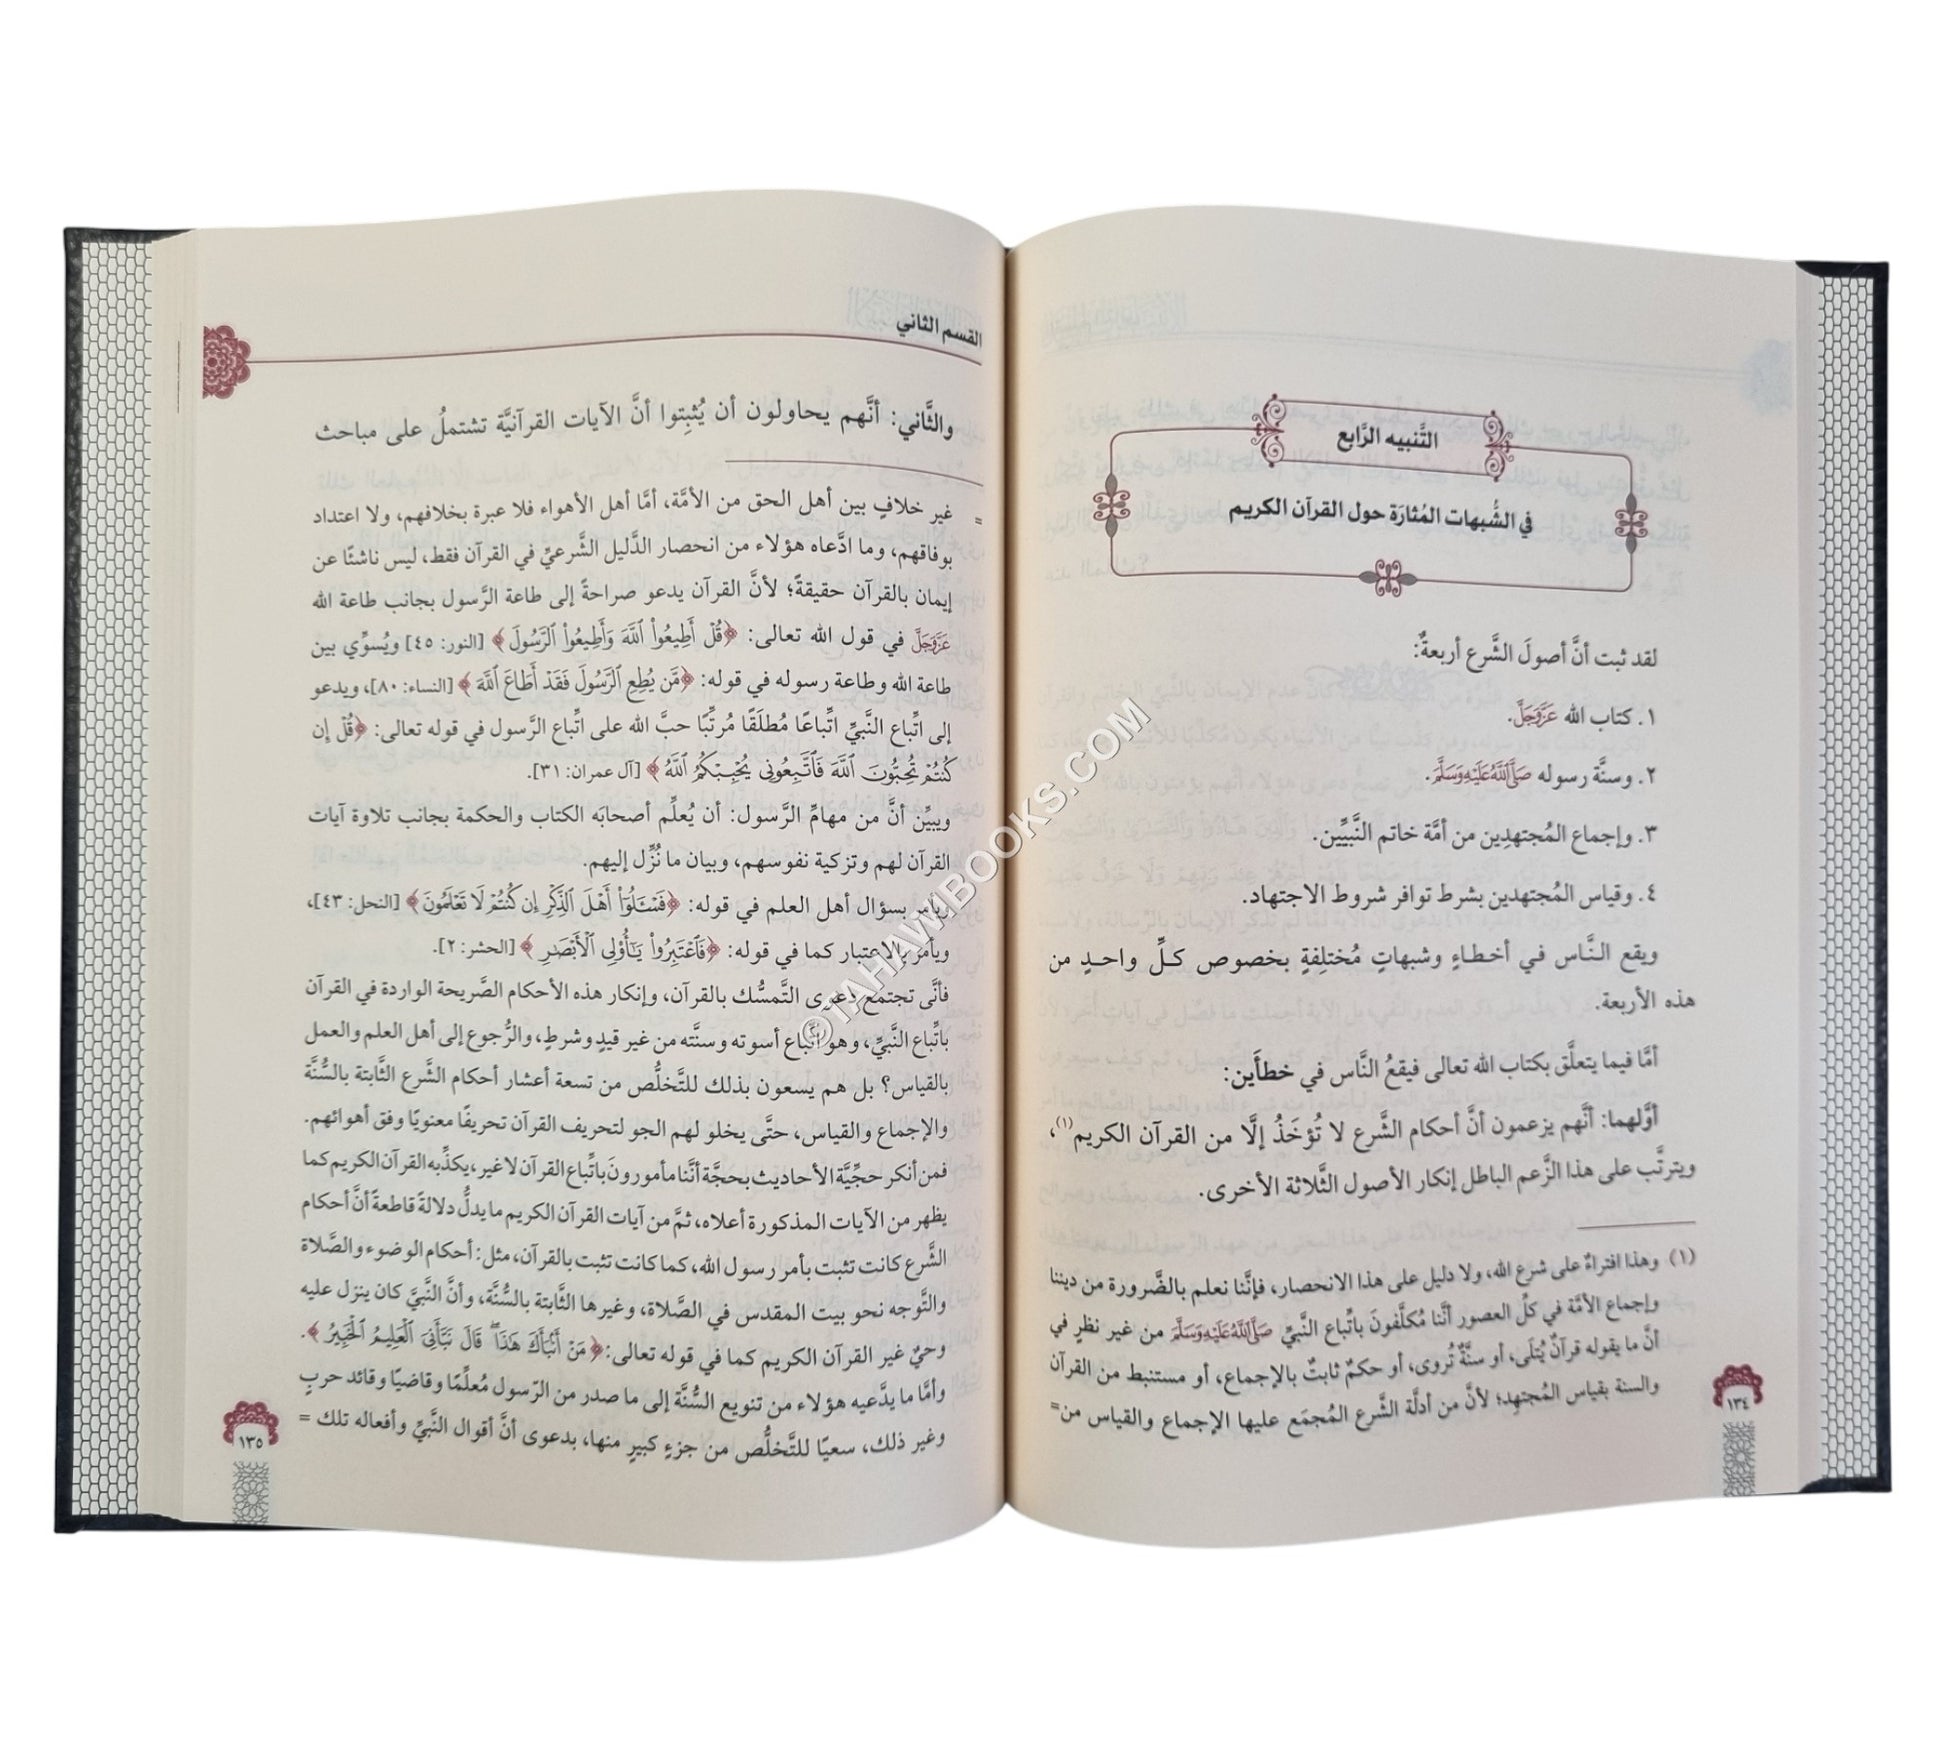 التَّنبيه الرَّابع
في الشُّبهات المُثارَة حول القرآن الكريم
لقد ثبت أنَّ أصولَ الشَّرع أربعةٌ:
١. كتاب الله عَزَّوَجَلَّ.
٢. وسنَّة رسوله صَلَّى اللَّهُ عَلَيْهِ وَسَلَّمَ.
٣. وإجماع المُجتهدِين من أمَّة خاتم النَّبيِّين.
٤. وقياس المُجتهدين بشرط توافر شروط الاجتهاد.
ويقع النَّاس في أخطاءٍ وشبهاتٍ مُختلِفةٍ بخصوص كلِّ واحدٍ من
هذه الأربعة.
أمَّا فيما يتعلَّق بكتاب الله تعالى فيقعُ النَّاس في خطأَين:
أوَّلهما: أنَّهم يزعمون أنَّ أحكام الشَّرع لا تُؤخَذُ إلَّا من القرآن الكريم(١)،
ويترتَّب على هذا الزَّعم الباطل إنكار الأصول الثَّلاثة الأخرى.
(١) وهذا افتراءٌ على شرع الله، ولا دليل على هذا الانحصار، فإنَّنا نعلم بالضَّرورة من ديننا
وإجماع الأمَّة في كلِّ العصور أنَّنا مُكلَّفونَ باتِّباع النَّبيِّ صَلَّى اللَّهُ عَلَيْهِ وَسَلَّمَ من غير نظرٍ في
أنَّ ما يقوله قرآنٌ يُتلَى، أو سنَّةٌ تُروى، أو حكمٌ ثابتٌ بالإجماع، أو مستنبط من القرآن
والسنة بقياس المُجتهِد؛ لأنَّ من أدلَّة الشَّرع المُجمَع عليها الإجماع والقياس من=
١٣٤
القسم الثاني
والثَّاني: أنَّهم يحاولون أن يُثبِتوا أنَّ الآيات القرآنيَّة تشتملُ على مباحث
= غير خلافٍ بين أهل الحق من الأمَّة، أمَّا أهل الأهواء فلا عبرة بخلافهم، ولا اعتداد
بوفاقهم، وما ادَّعاه هؤلاء من انحصار الدَّليل الشَّرعيِّ في القرآن فقط، ليس ناشئًا عن
إيمان بالقرآن حقيقةً؛ لأنَّ القرآن يدعو صراحةً إلى طاعة الرَّسول بجانب طاعة الله
عَزَّوَجَلَّ في قول الله تعالى: ﴿قُلْ أَطِيعُواْ ٱللَّهَ وَأَطِيعُواْ ٱلرَّسُولَ﴾ [النور: ٤٥] ويُسوِّي بين
طاعة الله وطاعة رسوله في قوله: ﴿مَّن يُطِعِ ٱلرَّسُولَ فَقَدْ أَطَاعَ ٱللَّهَ﴾ [النساء: ٨٠]، ويدعو
إلى اتِّباع النَّبيِّ اتِّباعًا مُطلَقًا مُرتِّبًا حبَّ الله على اتِّباع الرَّسول في قوله تعالى: ﴿قُلْ إِن
كُنتُمْ تُحِبُّونَ ٱللَّهَ فَٱتَّبِعُونِى يُحْبِبْكُمُ ٱللَّهُ﴾ [آل عمران: ٣١].
ويبيِّن أنَّ من مهامِّ الرَّسول: أن يُعلِّم أصحابَه الكتاب والحكمة بجانب تلاوة آيات
القرآن لهم وتزكية نفوسهم، وبيان ما نُزِّل إليهم.
ويأمر بسؤال أهل العلم في قوله: ﴿فَسْـَٔلُوٓاْ أَهْلَ ٱلذِّكْرِ إِن كُنتُمْ لَا تَعْلَمُونَ﴾ [النحل: ٤٣]،
ويأمر بالاعتبار كما في قوله: ﴿فَٱعْتَبِرُواْ يَـٰٓأُوْلِى ٱلْأَبْصَـٰرِ﴾ [الحشر: ٢].
فأنَّى تجتمع دعوى التَّمسُّك بالقرآن، وإنكار هذه الأحكام الصَّريحة الواردة في القرآن
باتِّباع النَّبيِّ، وهو اتِّباع أسوته وسنَّته من غير قيدٍ وشرطٍ، والرُّجوع إلى أهل العلم والعمل
بالقياس؟ بل هم يسعون بذلك للتَّخلُّص من تسعة أعشار أحكام الشَّرع الثَّابتة بالسُّنَّة
والإجماع والقياس، حتَّى يخلو لهم الجو لتحريف القرآن تحريفًا معنويًا وفق أهوائهم.
فمن أنكر حجِّيَّة الأحاديث بحجَّة أنَّنا مأمورونَ باتِّباع القرآن لا غير، يكذِّبه القرآن الكريم كما
يظهر من الآيات المذكورة أعلاه، ثمَّ من آيات القرآن الكريم ما يدلُّ دلالةً قاطعةً أنَّ أحكام
الشَّرع كانت تثبت بأمر رسول الله، كما كانت تثبت بالقرآن، مثل: أحكام الوضوء والصَّلاة
والتَّوجه نحو بيت المقدس في الصَّلاة، وغيرها الثَّابتة بالسُّنَّة، وأنَّ النَّبيَّ كان ينزل عليه
وحيٌ غير القرآن الكريم كما في قوله تعالى: ﴿مَنْ أَنۢبَأَكَ هَـٰذَا ۖ قَالَ نَبَّأَنِىَ ٱلْعَلِيمُ ٱلْخَبِيرُ﴾.
وأمَّا ما يدَّعيه هؤلاء من تنويع السُّنَّة إلى ما صدر من الرّسول مُعلِّمًا وقاضيًا وقائد حربٍ
وغير ذلك، سعيًا للتَّخلُّص من جزءٍ كبيرٍ منها، بدعوى أنَّ أقوال النَّبيِّ وأفعاله تلك =
١٣٥
©TAHAWIBOOKS.COM